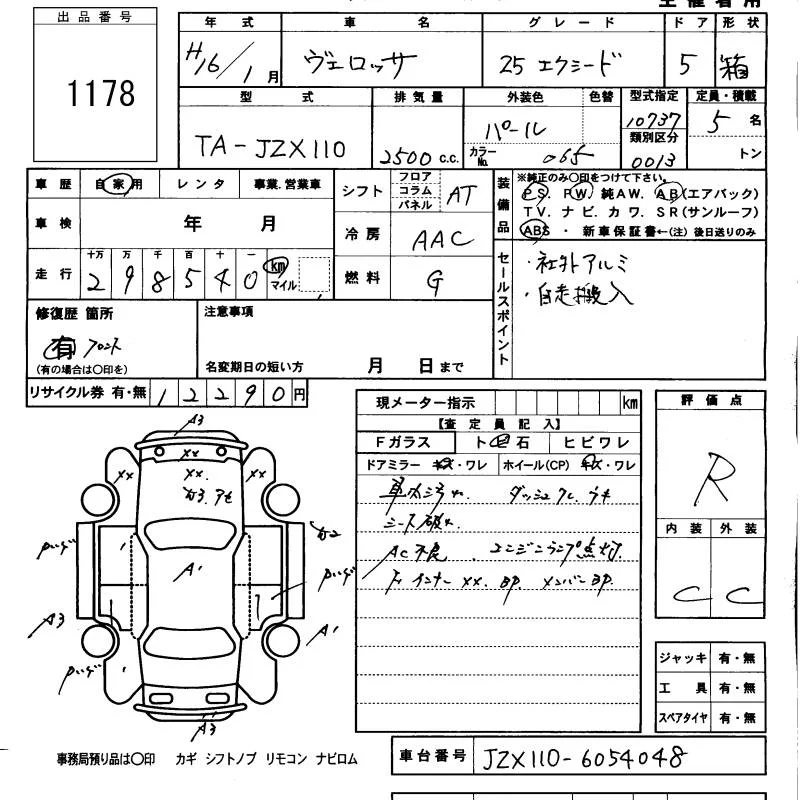 出品番号
1178
年式 車名 グレード ドア 形状
H16/1月 ヴェロッサ 25 エクシード 5 箱
型式 排気量 外装色 色替 型式指定 定員・積載
TA-JZX110 2500 c.c. パール 10737 5 名
カラーNo. 065 類別区分 0013 トン
車歴 自家用 レンタ 事業.営業車
シフト フロア コラム パネル AT
装備品 ※純正のみ〇印をつけて下さい。
PS. PW. 純AW. AB(エアバック)
TV. ナビ. カワ. SR(サンルーフ)
ABS ・ 新車保証書←(注) 後日送りのみ
車検 年 月
冷房 AAC
走行 十万 万 千 百 十 一
298540 km マイル
燃料 G
セールスポイント
・社外アルミ
・自走搬入
修復歴 箇所
有 フロント
(有の場合は〇印を)
注意事項
名変期日の短い方 月 日まで
リサイクル券 有・無 12290円
現メーター指示 km
【査定員記入】
Fガラス ト ビ 石 ヒビワレ
ドアミラー キズ・ワレ ホイール(CP) キズ・ワレ
車内汚れ ダッシュ
シート破れ
AC不良 エンジンランプ点灯.
インナー XX. BP. メンバー BP
評価点
R
内装 外装
C C
ジャッキ 有・無
工具 有・無
スペアタイヤ 有・無
A3
XX
XX XX. XX
A1
A3
A1
A3
事務局預り品は〇印 カギ シフトノブ リモコン ナビロム
車台番号 JZX110-6054048